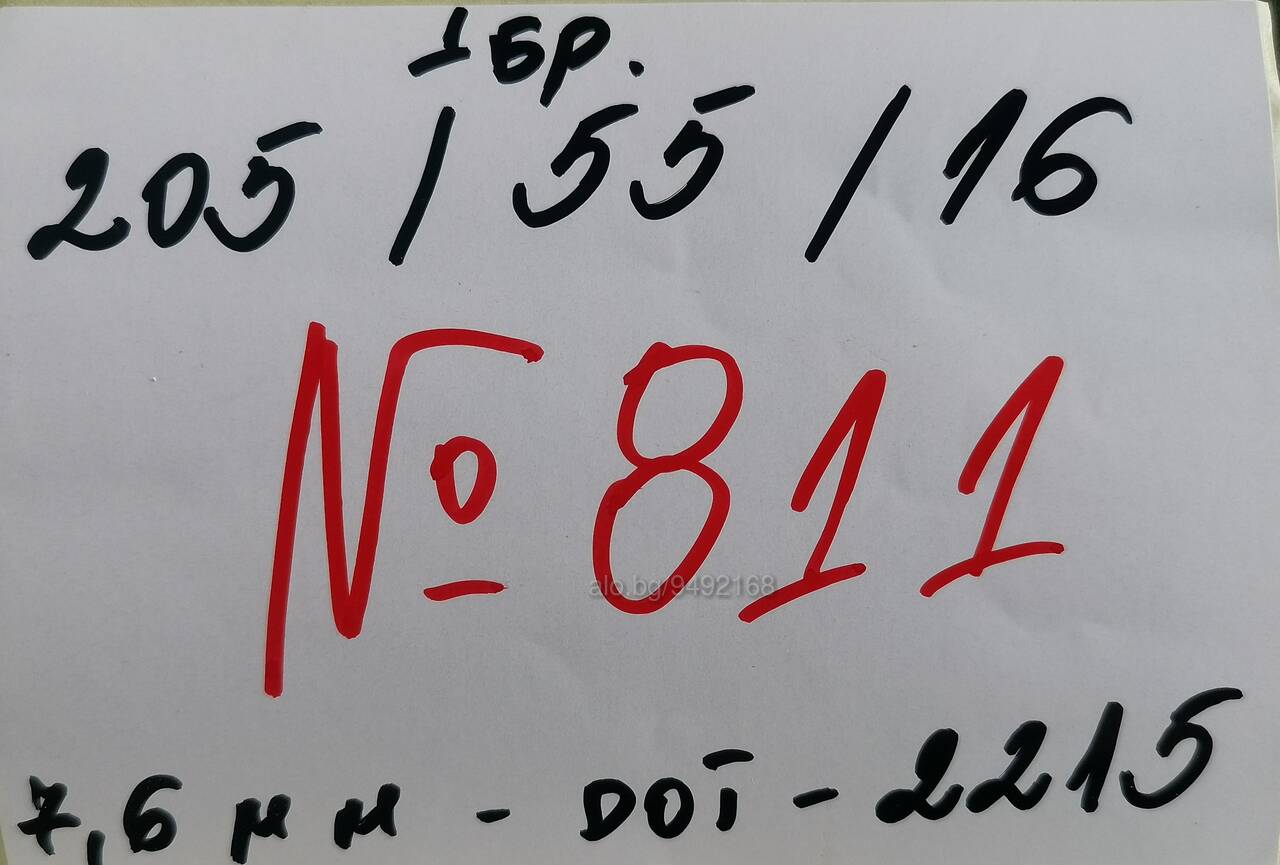 1 бр.
205 / 55 / 16
№ 811
alo.bg/9492168
7,6 мм - DOT - 2215